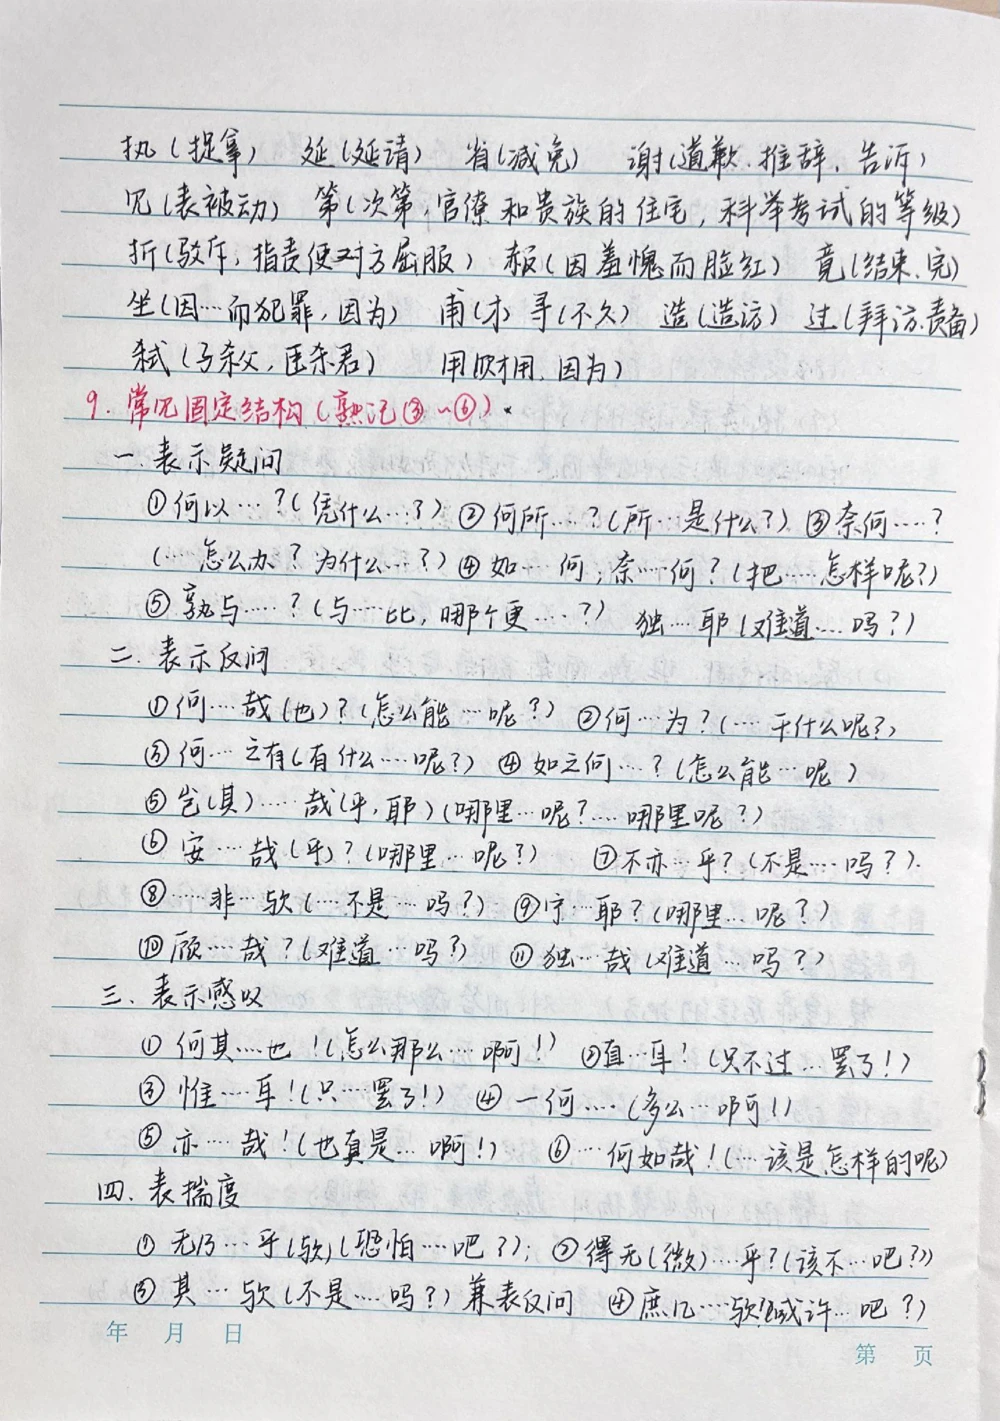 执（捉拿） 延（延请） 省（减免） 谢（道歉、推辞、告诉）
见（表被动） 第（次第，官僚和贵族的住宅，科举考试的等级）
折（驳斥，指责使对方屈服） 赧（因羞愧而脸红） 竟（结束、完）
坐（因…而犯罪，因为） 甫（才） 寻（不久） 造（造访） 过（拜访、责备）
弑（子杀父，臣杀君） 用（财用、因为）
9. 常见固定结构（熟记③~⑥）
一. 表示疑问
①何以…？（凭什么…？） ②何所…？（所…是什么？） ③奈何…？
（…怎么办？为什么…？） ④如…何；奈…何？（把…怎样呢？）
⑤孰与…？（与…比，哪个更…？） 独…耶（难道…吗？）
二. 表示反问
①何…哉（也）？（怎么能…呢？） ②何…为？（…干什么呢？）
③何…之有（有什么…呢？） ④如之何…？（怎么能…呢）
⑤岂（其）…哉（乎，耶）（哪里…呢？…哪里呢？）
⑥安…哉（乎）？（哪里…呢？） ⑦不亦…乎？（不是…吗？）
⑧…非…欤（…不是…吗？） ⑨宁…耶？（哪里…呢？）
⑩顾…哉？（难道…吗？） ⑪独…哉（难道…吗？）
三. 表示感叹
①何其…也！（怎么那么…啊！） ②直…耳！（只不过…罢了！）
③惟…耳！（只…罢了！） ④一何…（多么…啊！）
⑤亦…哉！（也真是…啊！） ⑥…何如哉！（…该是怎样的呢）
四. 表揣度
①无乃…乎（欤）（恐怕…吧？）； ②得无（微）…乎？（该不…吧？）
③其…欤（不是…吗？）兼表反问 ④庶几…欤？（或许…吧？）
年 月 日
第 页